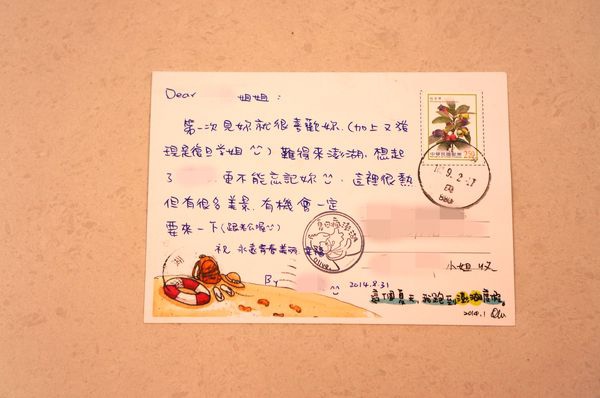 Dear 姐姐：
第一次見妳就很喜歡妳(加上又發
現是復旦學姐 )難得來澎湖，想起
了 更不能忘記妳 這裡很熱
但有很多美景，有機會一定
要來一下(跟老公喔 )
祝 永遠青春美麗，幸福
By
2014.8.31
中華民國郵票
小姐 收
這個夏天，我跑到澎湖度假。
2014.1